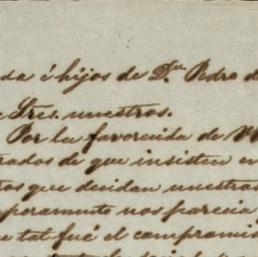 da é hijos de D.n Pedro d
Sres. nuestros.
Por la favorecida de
rados de que insisten en
os que decidan nuestras
poramento nos parecia
tal fué el compromis